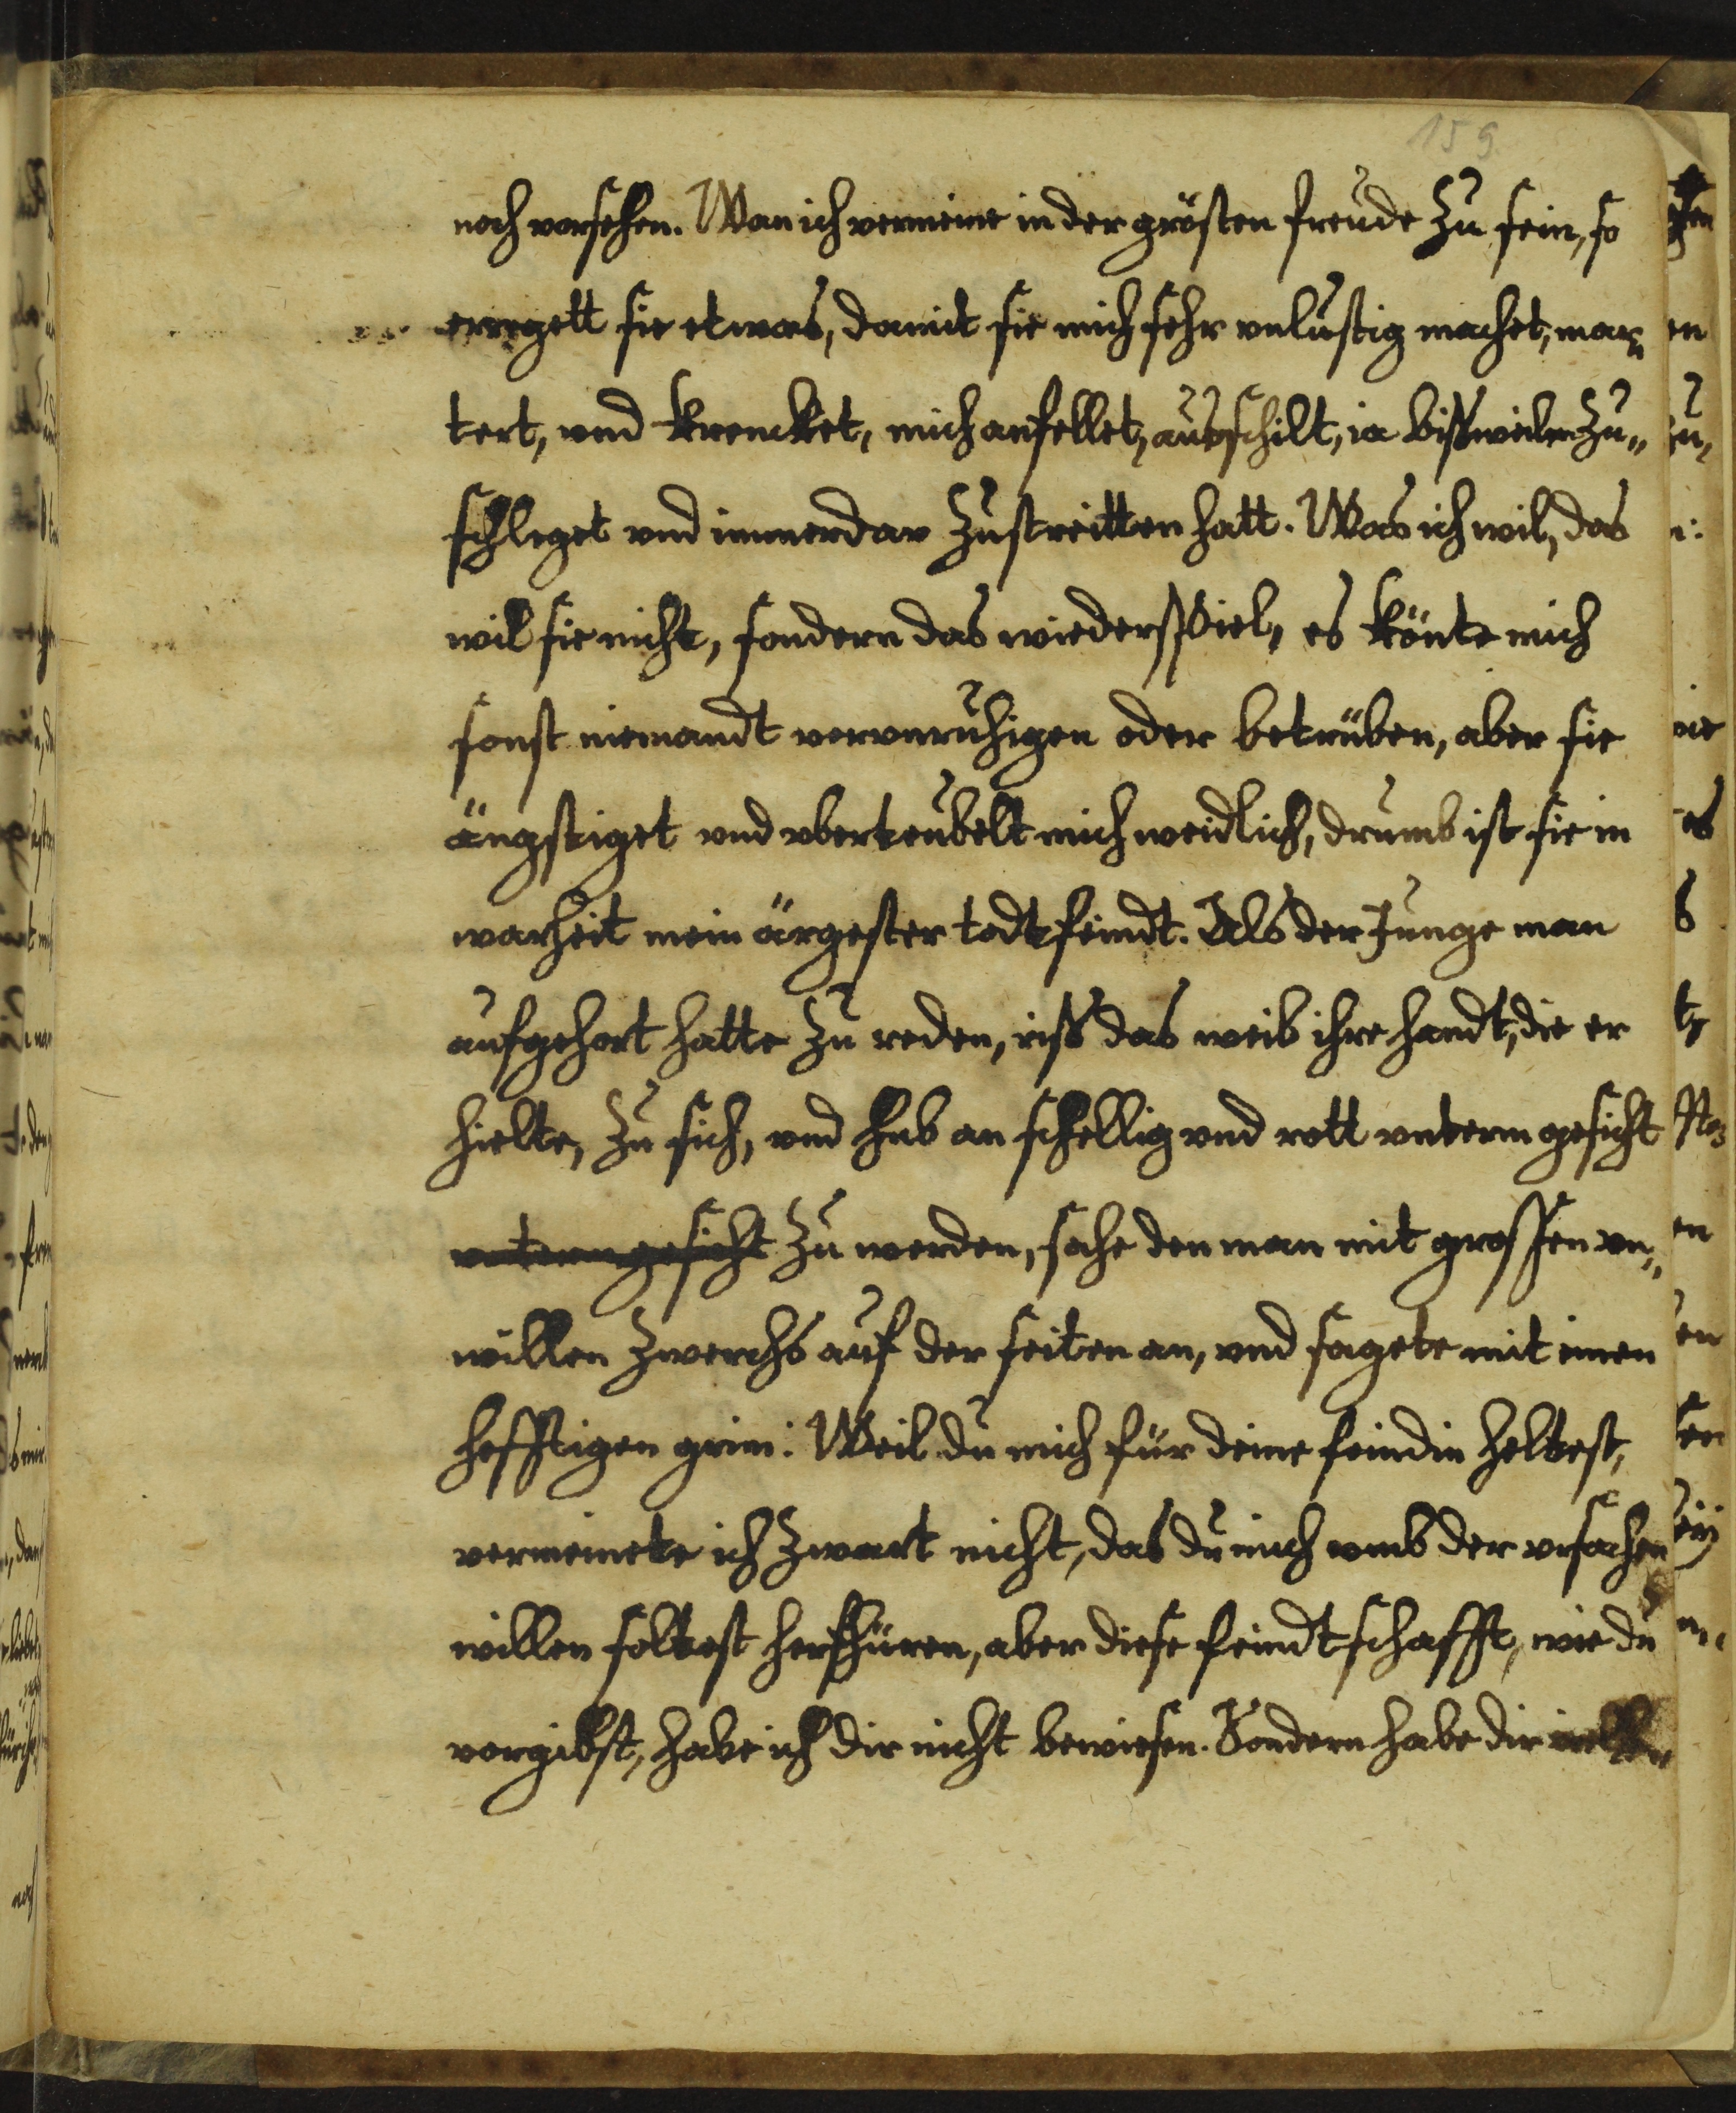 159
noch vorsehen. Wan ich vermeine in der grösten freude zu sein, so
erregett sie etwas, damit sie mich sehr vnlustig machet, mar„
tert, vnd krencket, mich anfellet, ausschilt, ia bißweilen zu„
schleget vnd immerdar zustreitten hatt. Was ich wil, das
wil sie nicht, sondern das wiederspiel, es könte mich
sonst niemandt vervnruhigen oder betrüben, aber sie
ängstiget vnd vberteubelt mich weidlich, drumb ist sie in
warheit mein ärgester todtfeindt. Als der Junge man
aufgehort hatte zu reden, riß das weib ihre handt, die er
hielte, zu sich, vnd hub an schellig vnd rott vnterm gesicht
vnterm gesicht zu werden, sahe den man mit grossen vn„
willen zwerchs auf der seiten an, vnd sagete mit einen
hefftigen grim: Weil du mich für deine feindin heltest,
vermeinete ich zwart nicht, das du mich vmb der vrsachen
willen soltest herführen, aber diese feindtschafft, wie du
vorgibst, habe ich dir nicht bewiesen. Sondern habe dir